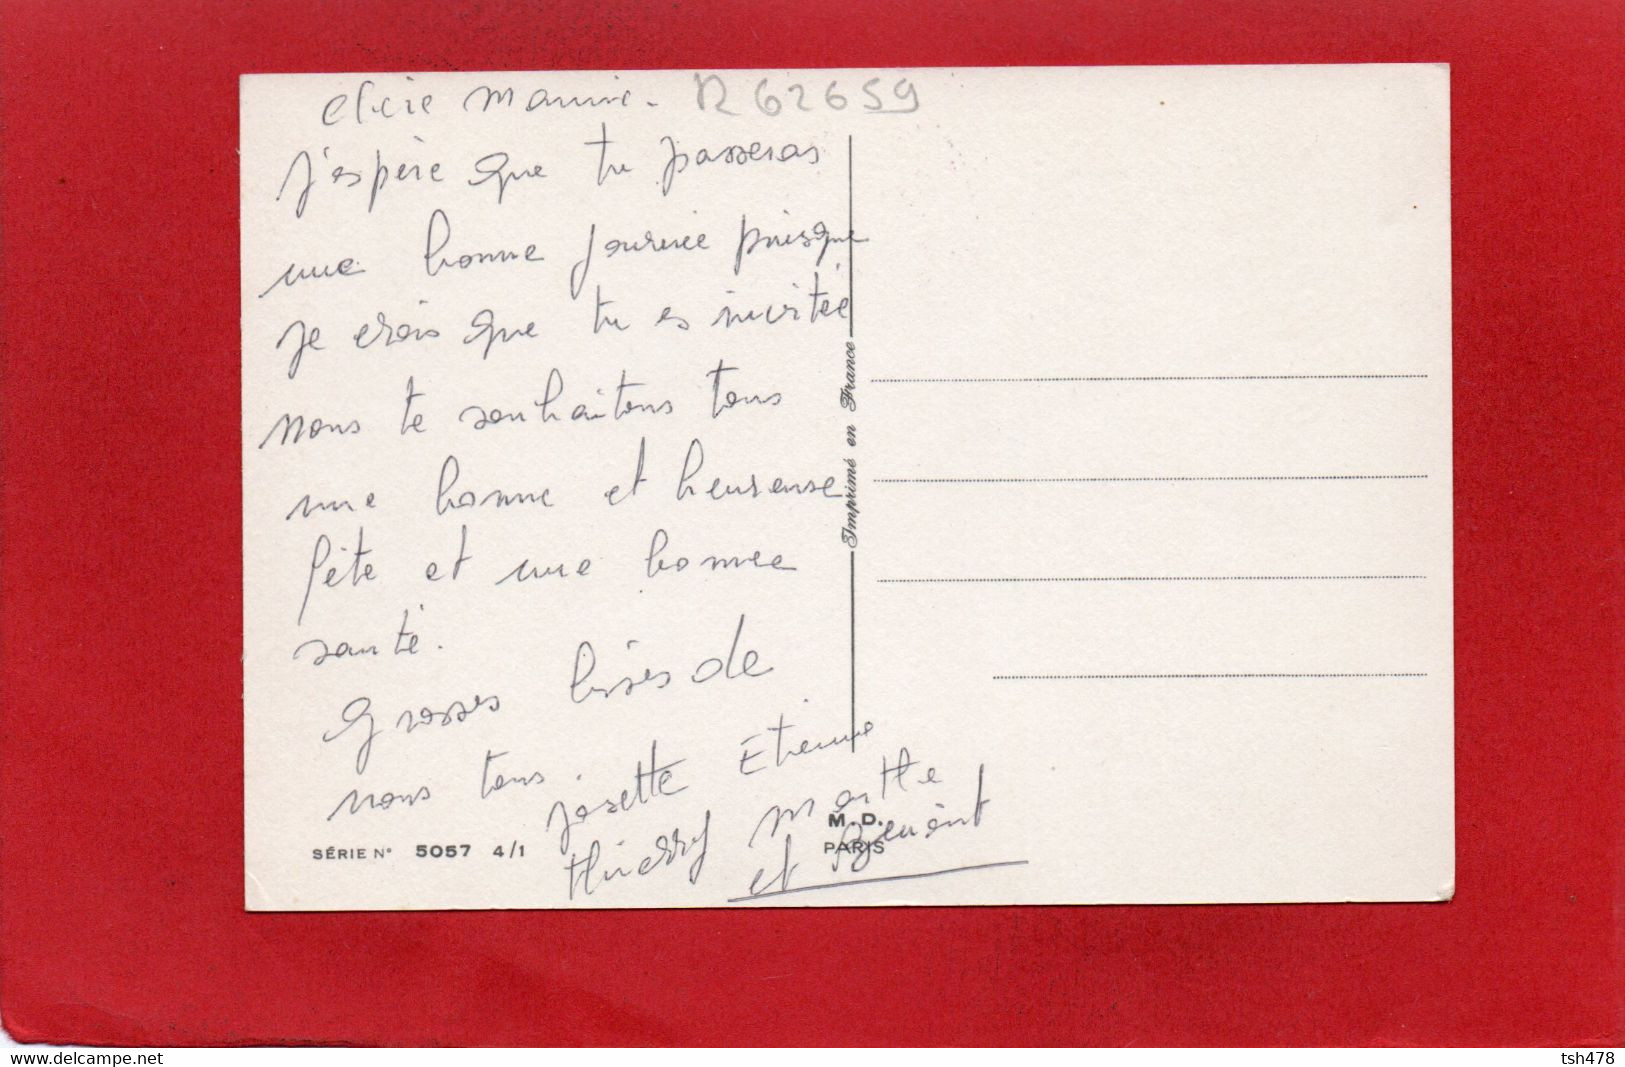 chère Mamie. R62659
J'espère que tu passeras
une bonne journée puisque
je crois que tu es invitée
nous te souhaitons tous
une bonne et heureuse
fête et une bonne
santé.
Grosses bises de
nous tous.
Josette Etienne
Thierry Marthe
et Benoît
Imprimé en France
SÉRIE N° 5057 4/1
M.D.
PARIS
www.delcampe.net
tsh478